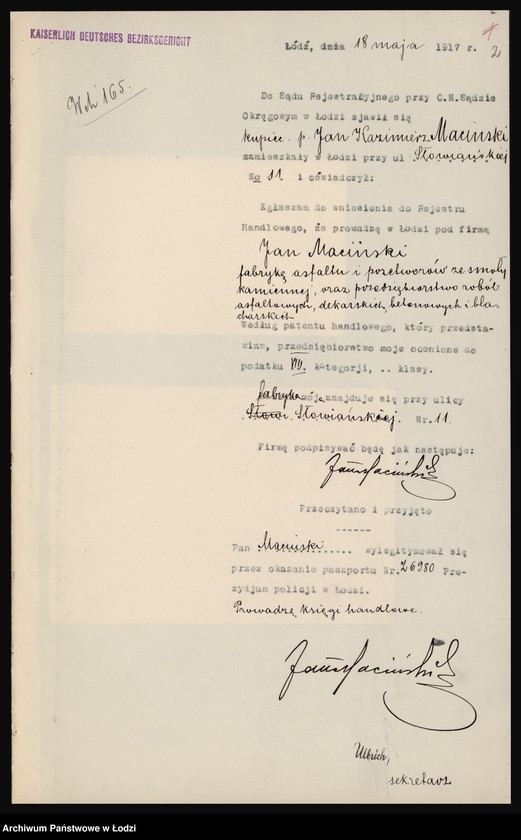 KAISERLICH DEUTSCHES BEZIRKSGERICHT
Łódź, dnia 18 maja 1917 r.
1
2
Wch 165.
Do Sądu Rejestracyjnego przy C.N.Sądzie
Okręgowym w Łodzi zjawił się
kupiec p. Jan Kazimierz Maciński
zamieszkały w Łodzi przy ul Słowiańskiej
No 11. i oświadczył:
Zgłaszam do wniesienia do Rejestru
Handlowego, że prowadzę w Łodzi pod firmą
Jan Maciński
fabrykę asfaltu i przetworów ze smoły
kamiennej, oraz przedsiębiorstwo robót
asfaltowych, dekarskich, betonowych i bla-
charskich
Według patentu handlowego, który przedsta-
wiam, przedsiębiorstwo moje ocenione do
podatku VII. kategorji, .. klasy.
fabryka mója znajduje się przy ulicy
Słowi Słowiańskiej. Nr. 11.
Firmę podpisywać będę jak następuje:
Jan Maciński
Przeczytano i przyjęto
------
Pan Maciński..... wylegitymował się
przez okazanie paszportu Nr. 26980 Pre-
zydjum policji w Łodzi.
Prowadzę księgi handlowe.
Jan Maciński
Ulbrich,
sekretarz
Archiwum Państwowe w Łodzi